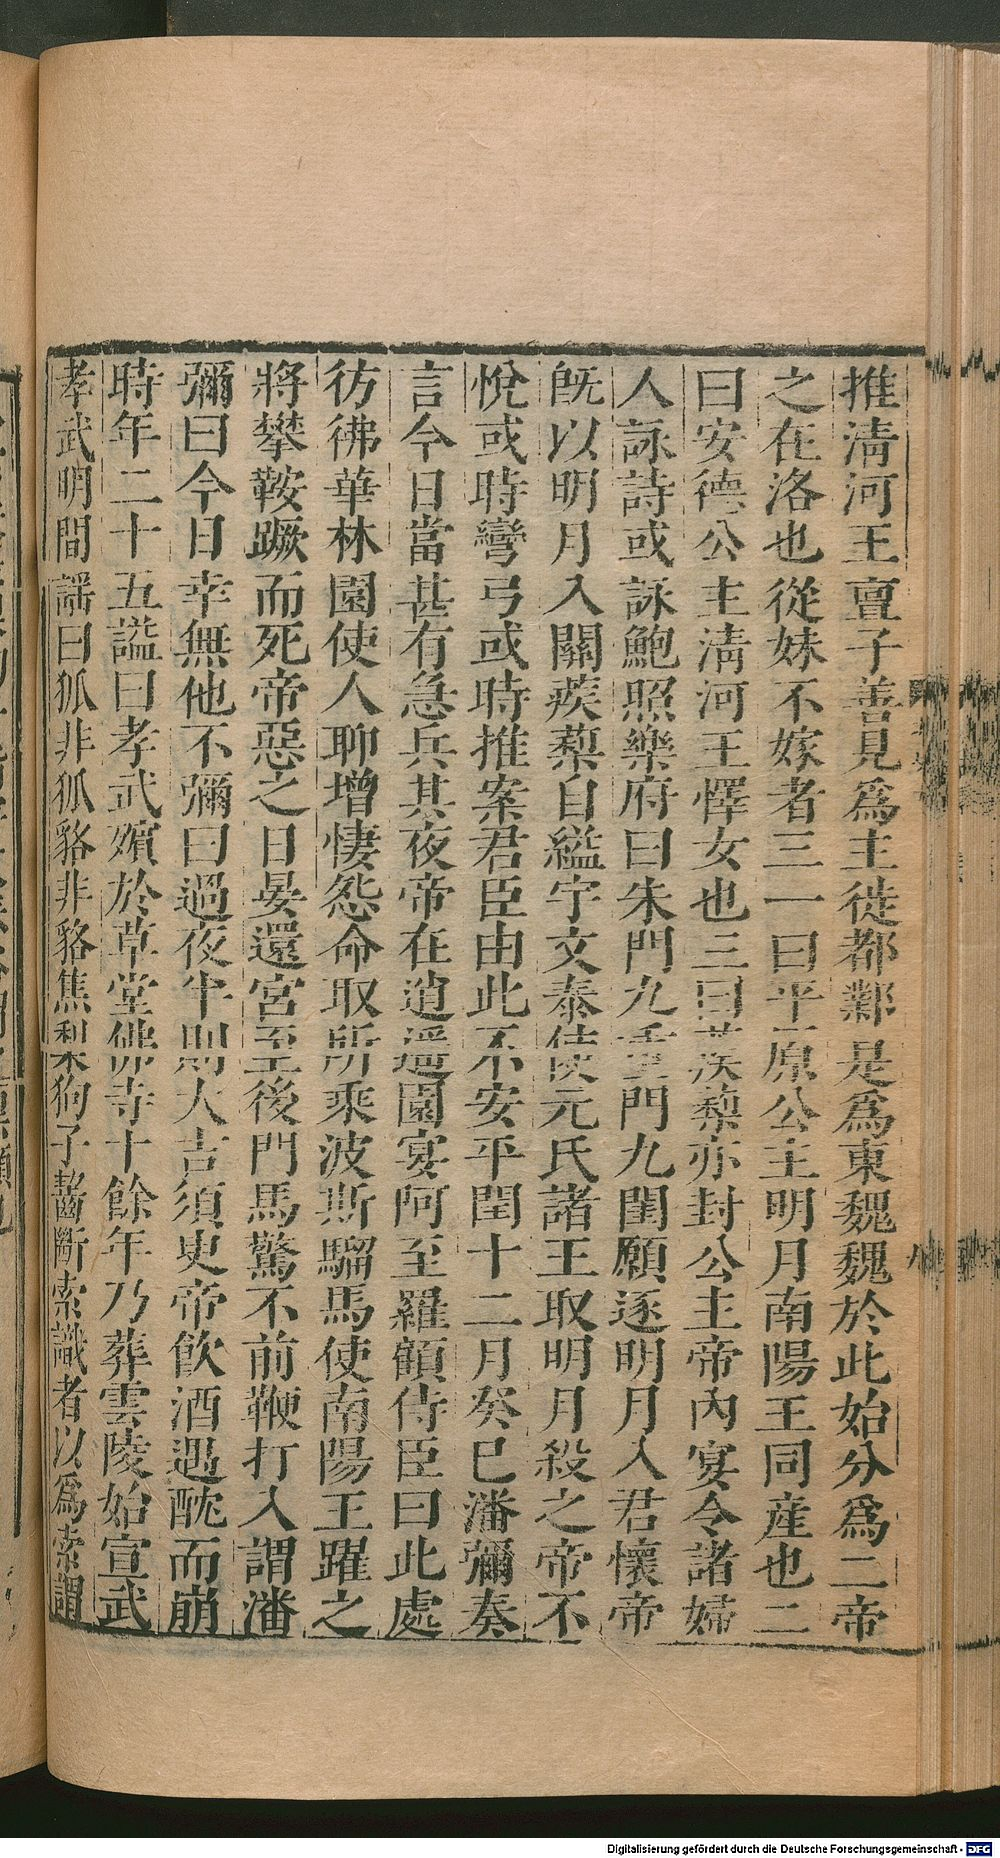 推清河王亶子善見爲主徙都鄴是爲東魏魏於此始分爲二帝
之在洛也從妹不嫁者三一曰平原公主明月南陽王同産也二
曰安德公主清河王懌女也三曰蒺藜亦封公主帝內宴令諸婦
人詠詩或詠鮑照樂府曰朱門九重門九閨願逐明月入君懷帝
既以明月入關蒺藜自縊宇文泰使元氏諸王取明月殺之帝不
悅或時彎弓或時推案君臣由此不安平閏十二月癸巳潘彌奏
言今日當甚有急兵其夜帝在逍遥園宴阿至羅顧侍臣曰此處
彷彿華林園使人聊增悽怨命取所乘波斯騮馬使南陽王躍之
將攀鞍蹶而死帝惡之日晏還宮至後門馬驚不前鞭打入謂潘
彌曰今日幸無他不彌曰過夜半則大吉須臾帝飲酒遇酖而崩
時年二十五謚曰孝武殯於草堂佛寺十餘年乃葬雲陵始宣武
孝武明間謡曰狐非狐貉非貉焦梨狗子齧斷索識者以爲索謂
Digitalisierung gefördert durch die Deutsche Forschungsgemeinschaft - DFG